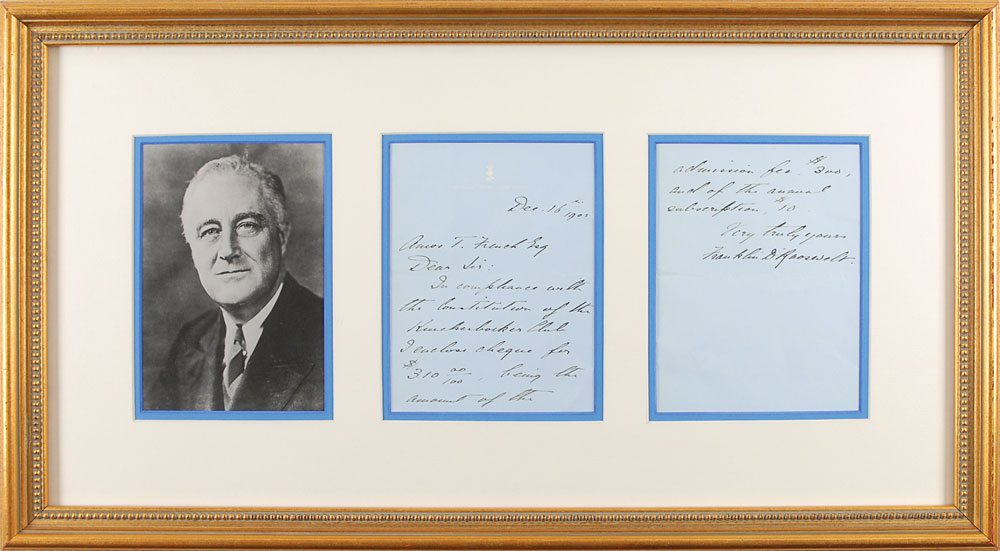 Dec. 16th
Amos T. French Esq
Dear Sir:
In compliance with
the Constitution of the
Knickerbocker Club
I enclose cheque for
$310 00/100, being the
amount of the
admission fee $300,
and of the annual
subscription, $10.
Very truly yours
Franklin D. Roosevelt.